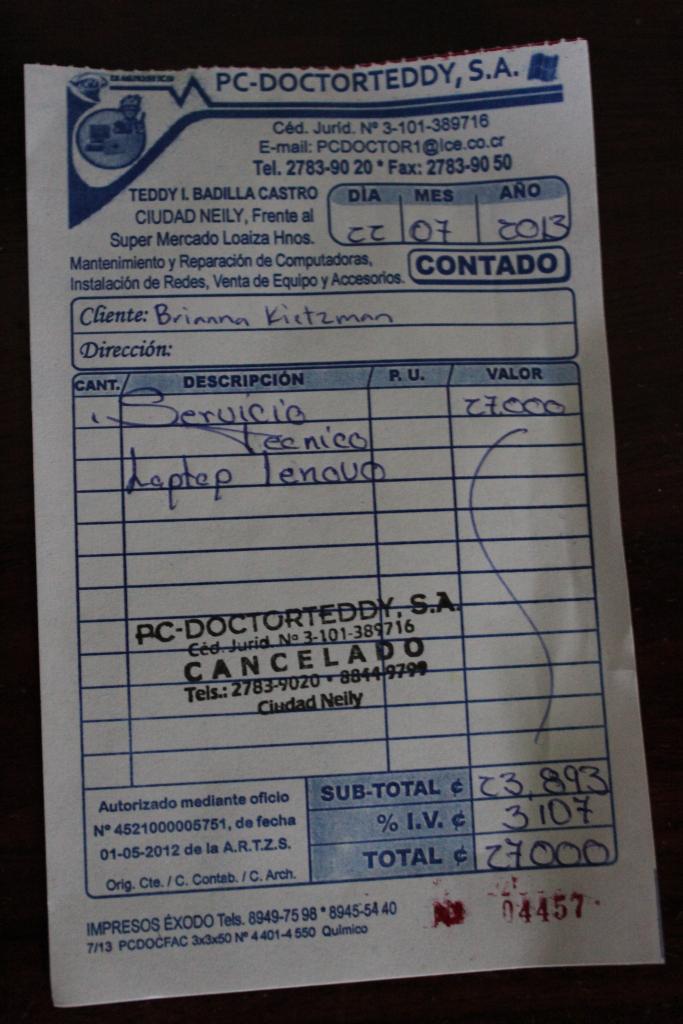 PC-DOCTORTEDDY, S.A.
Céd. Juríd. Nº 3-101-389716
E-mail: PCDOCTOR1@ice.co.cr
Tel. 2783-90 20 * Fax: 2783-90 50
TEDDY I. BADILLA CASTRO
CIUDAD NEILY, Frente al
Super Mercado Loaiza Hnos.
DÍA MES AÑO
22 07 2013
Mantenimiento y Reparación de Computadoras,
Instalación de Redes, Venta de Equipo y Accesorios.
CONTADO
Cliente: Brianna Kietzman
Dirección:
CANT. DESCRIPCIÓN P. U. VALOR
Servicio 27.000
Tecnico
Laptop lenovo
PC-DOCTORTEDDY, S.A.
Céd. Juríd. Nº 3-101-389716
CANCELADO
Tels.: 2783-9020 - 8844-9799
Ciudad Neily
Autorizado mediante oficio
Nº 4521000005751, de fecha
01-05-2012 de la A.R.T.Z.S.
Orig. Cte. / C. Contab. / C. Arch.
SUB-TOTAL ¢ 23,893
% I.V. ¢ 3107
TOTAL ¢ 27000
IMPRESOS ÉXODO Tels. 8949-75 98 * 8945-54 40
7/13 PCDOCFAC 3x3x50 Nº 4 401-4 550 Químico
04457